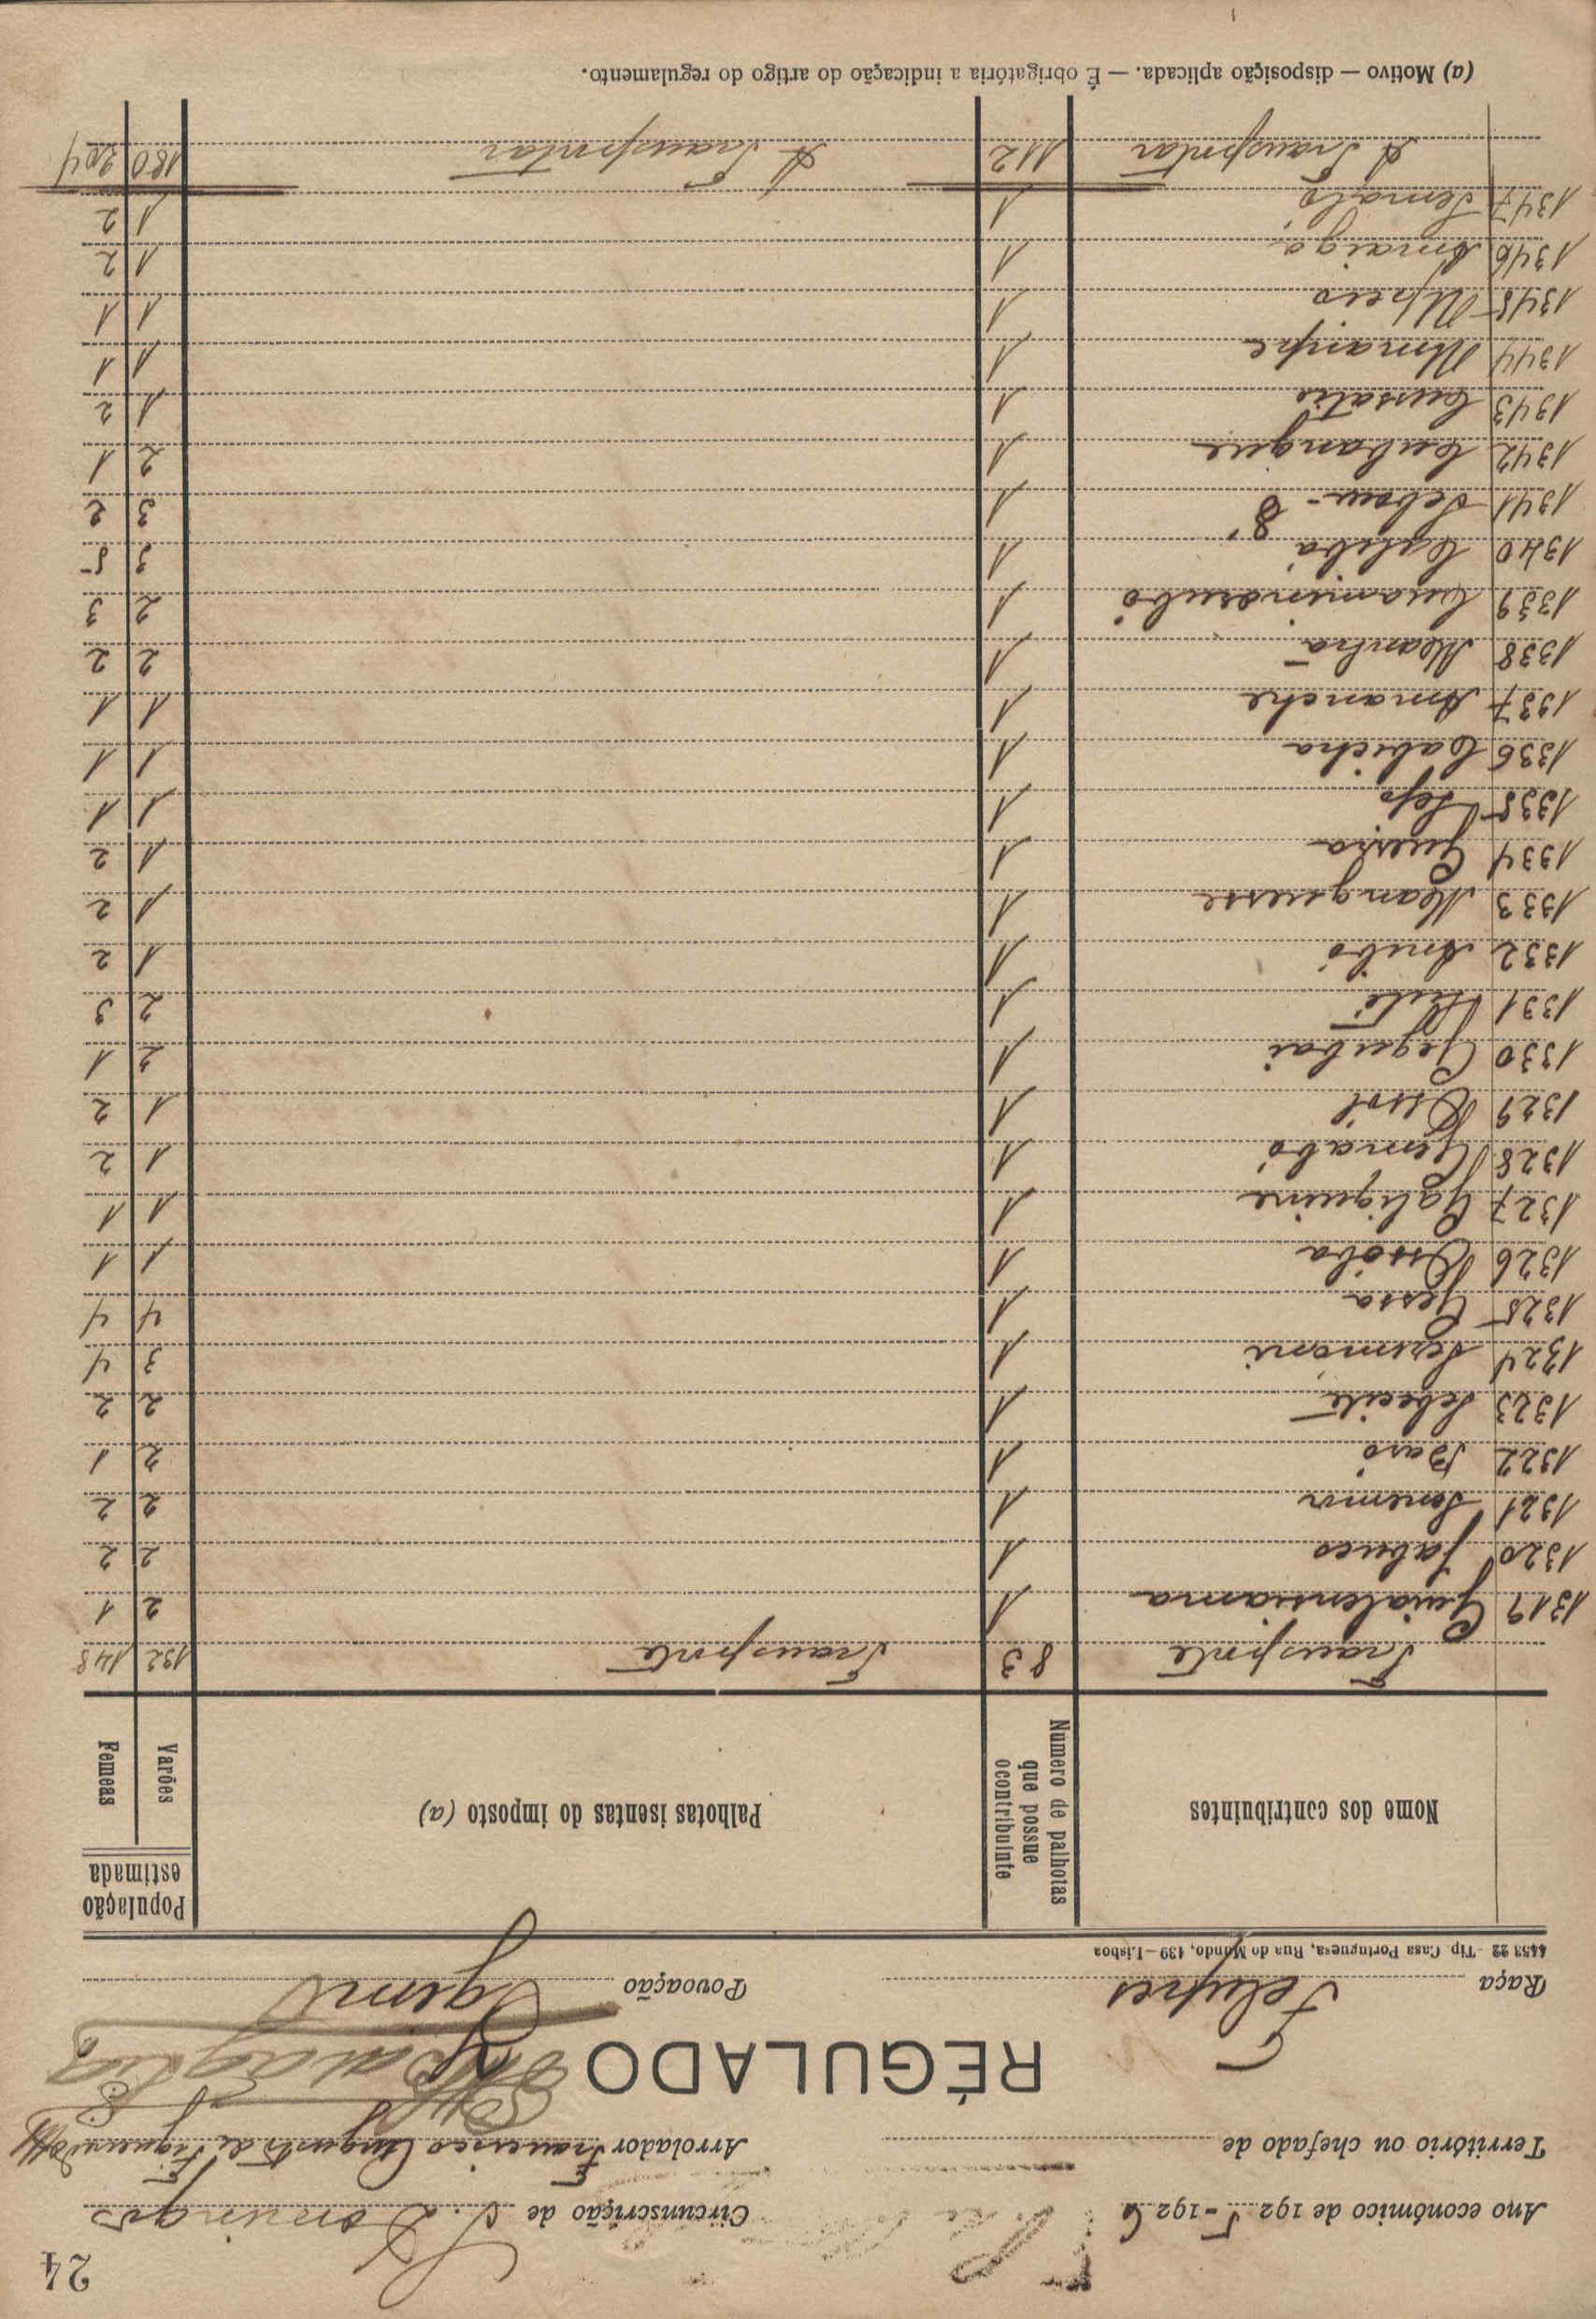 24
Ano económico de 1925-1926 Circunscrição de S. Domingos
Território ou chefado de Arrolador Francisco Augusto de Figueiredo
RÉGULADO
Raça Felupes Povoação Egim
4453 22 - Tip. Casa Portuguesa, Rua do Mundo, 139 - Lisboa
Nome dos contribuintes Numero de palhotas que possue ocontribuinte Palhotas isentas do imposto (a) População estimada Varões Femeas
Transporte 83 Transporte 132 148
1319 Guialensiama 1 2 1
1320 Jabuco 1 2 2
1321 Senemor 1 2 2
1322 Basó 1 2 1
1323 Sebecite 1 2 2
1324 Seremoni 1 3 4
1325 Gessa 1 4 4
1326 Ossóba 1 1 1
1327 Galiquine 1 1 1
1328 Gemabó 1 1 2
1329 Ossól 1 1 2
1330 Gegubai 1 2 1
1331 1 2 3
1332 Anibó 1 1 2
1333 Manguesse 1 1 2
1334 Gueira 1 1 2
1335 Sefo 1 1 1
1336 Cabicha 1 1 1
1337 Amanche 1 1 1
1338 Manhã 1 2 2
1339 Cuaminorubó 1 2 3
1340 Eglibá 1 3 5
1341 1 3 2
1342 Cubangue 1 2 1
1343 Cussatio 1 1 2
1344 Umanhe 1 1 1
1345 Upeio 1 1 1
1346 Emaigá 1 1 2
1347 Semaló 1 1 2
A Transportar 112 A Transportar 180 204
(a) Motivo — disposição aplicada. — É obrigatória a indicação do artigo do regulamento.